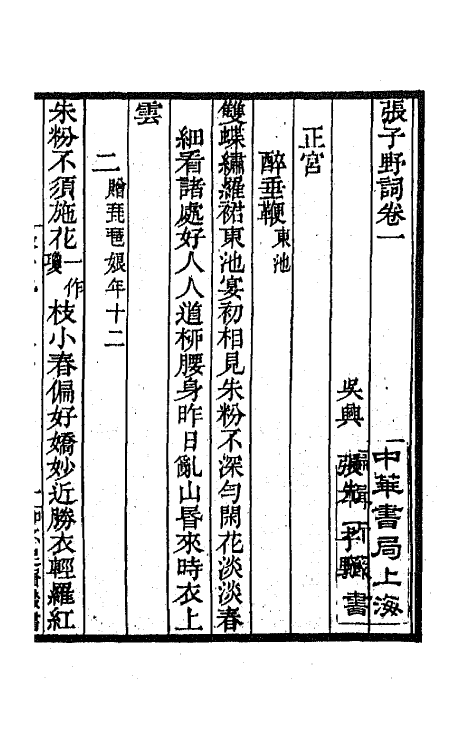 張子野詞卷一
吳興 張先 子野
中華書局上海
編輯所藏書
正宮
醉垂鞭 東池
雙蝶繡羅裙東池宴初相見朱粉不深勻閒花淡淡春
細看諸處好人人道栁腰身昨日亂山昏來時衣上
雲
二 贈琵琶娘年十二
朱粉不須施花一作瓊枝小春偏好嬌妙近勝衣輕羅紅